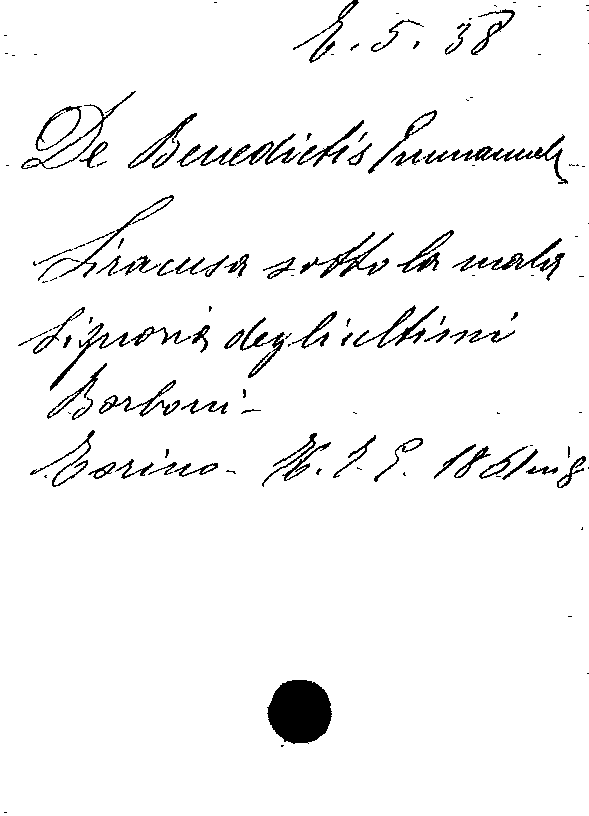 E. 5. 38
De Benedictis Emmanuele
Siracusa sotto la mala
signoria degli ultimi
Borboni -
Torino - U. T. E. 1861 in 8